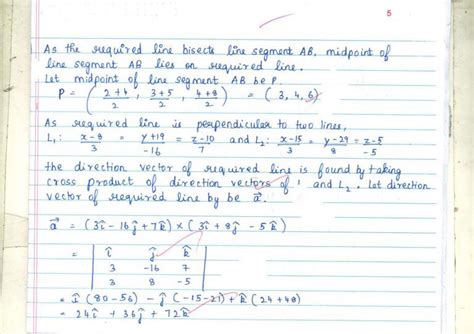 5
As the required line bisects line segment AB, midpoint of
line segment AB lies on required line.
Let midpoint of line segment AB be P.
P = ( 2+4/2 , 3+5/2 , 4+8/2 ) = ( 3, 4, 6)
As required line is perpendicular to two lines,
L₁: x-8/3 = y+19/-16 = z-10/7 and L₂: x-15/3 = y-29/8 = z-5/-5
the direction vector of required line is found by taking
cross product of direction vectors of and L₂. Let direction
vector of required line by be a⃗.
a⃗ = (3î - 16ĵ + 7k̂) × (3î + 8ĵ - 5k̂)
= | î ĵ k̂ |
3 -16 7
3 8 -5
= î (80-56) - ĵ (-15-21) + k̂ (24+48)
= 24î + 36ĵ + 72k̂